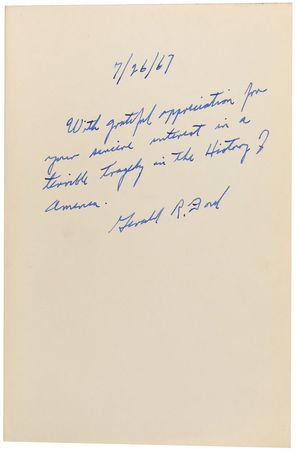 7/26/67
With grateful appreciation for
your sincere interest in a
terrible tragedy in the History of
America.
Gerald R. Ford